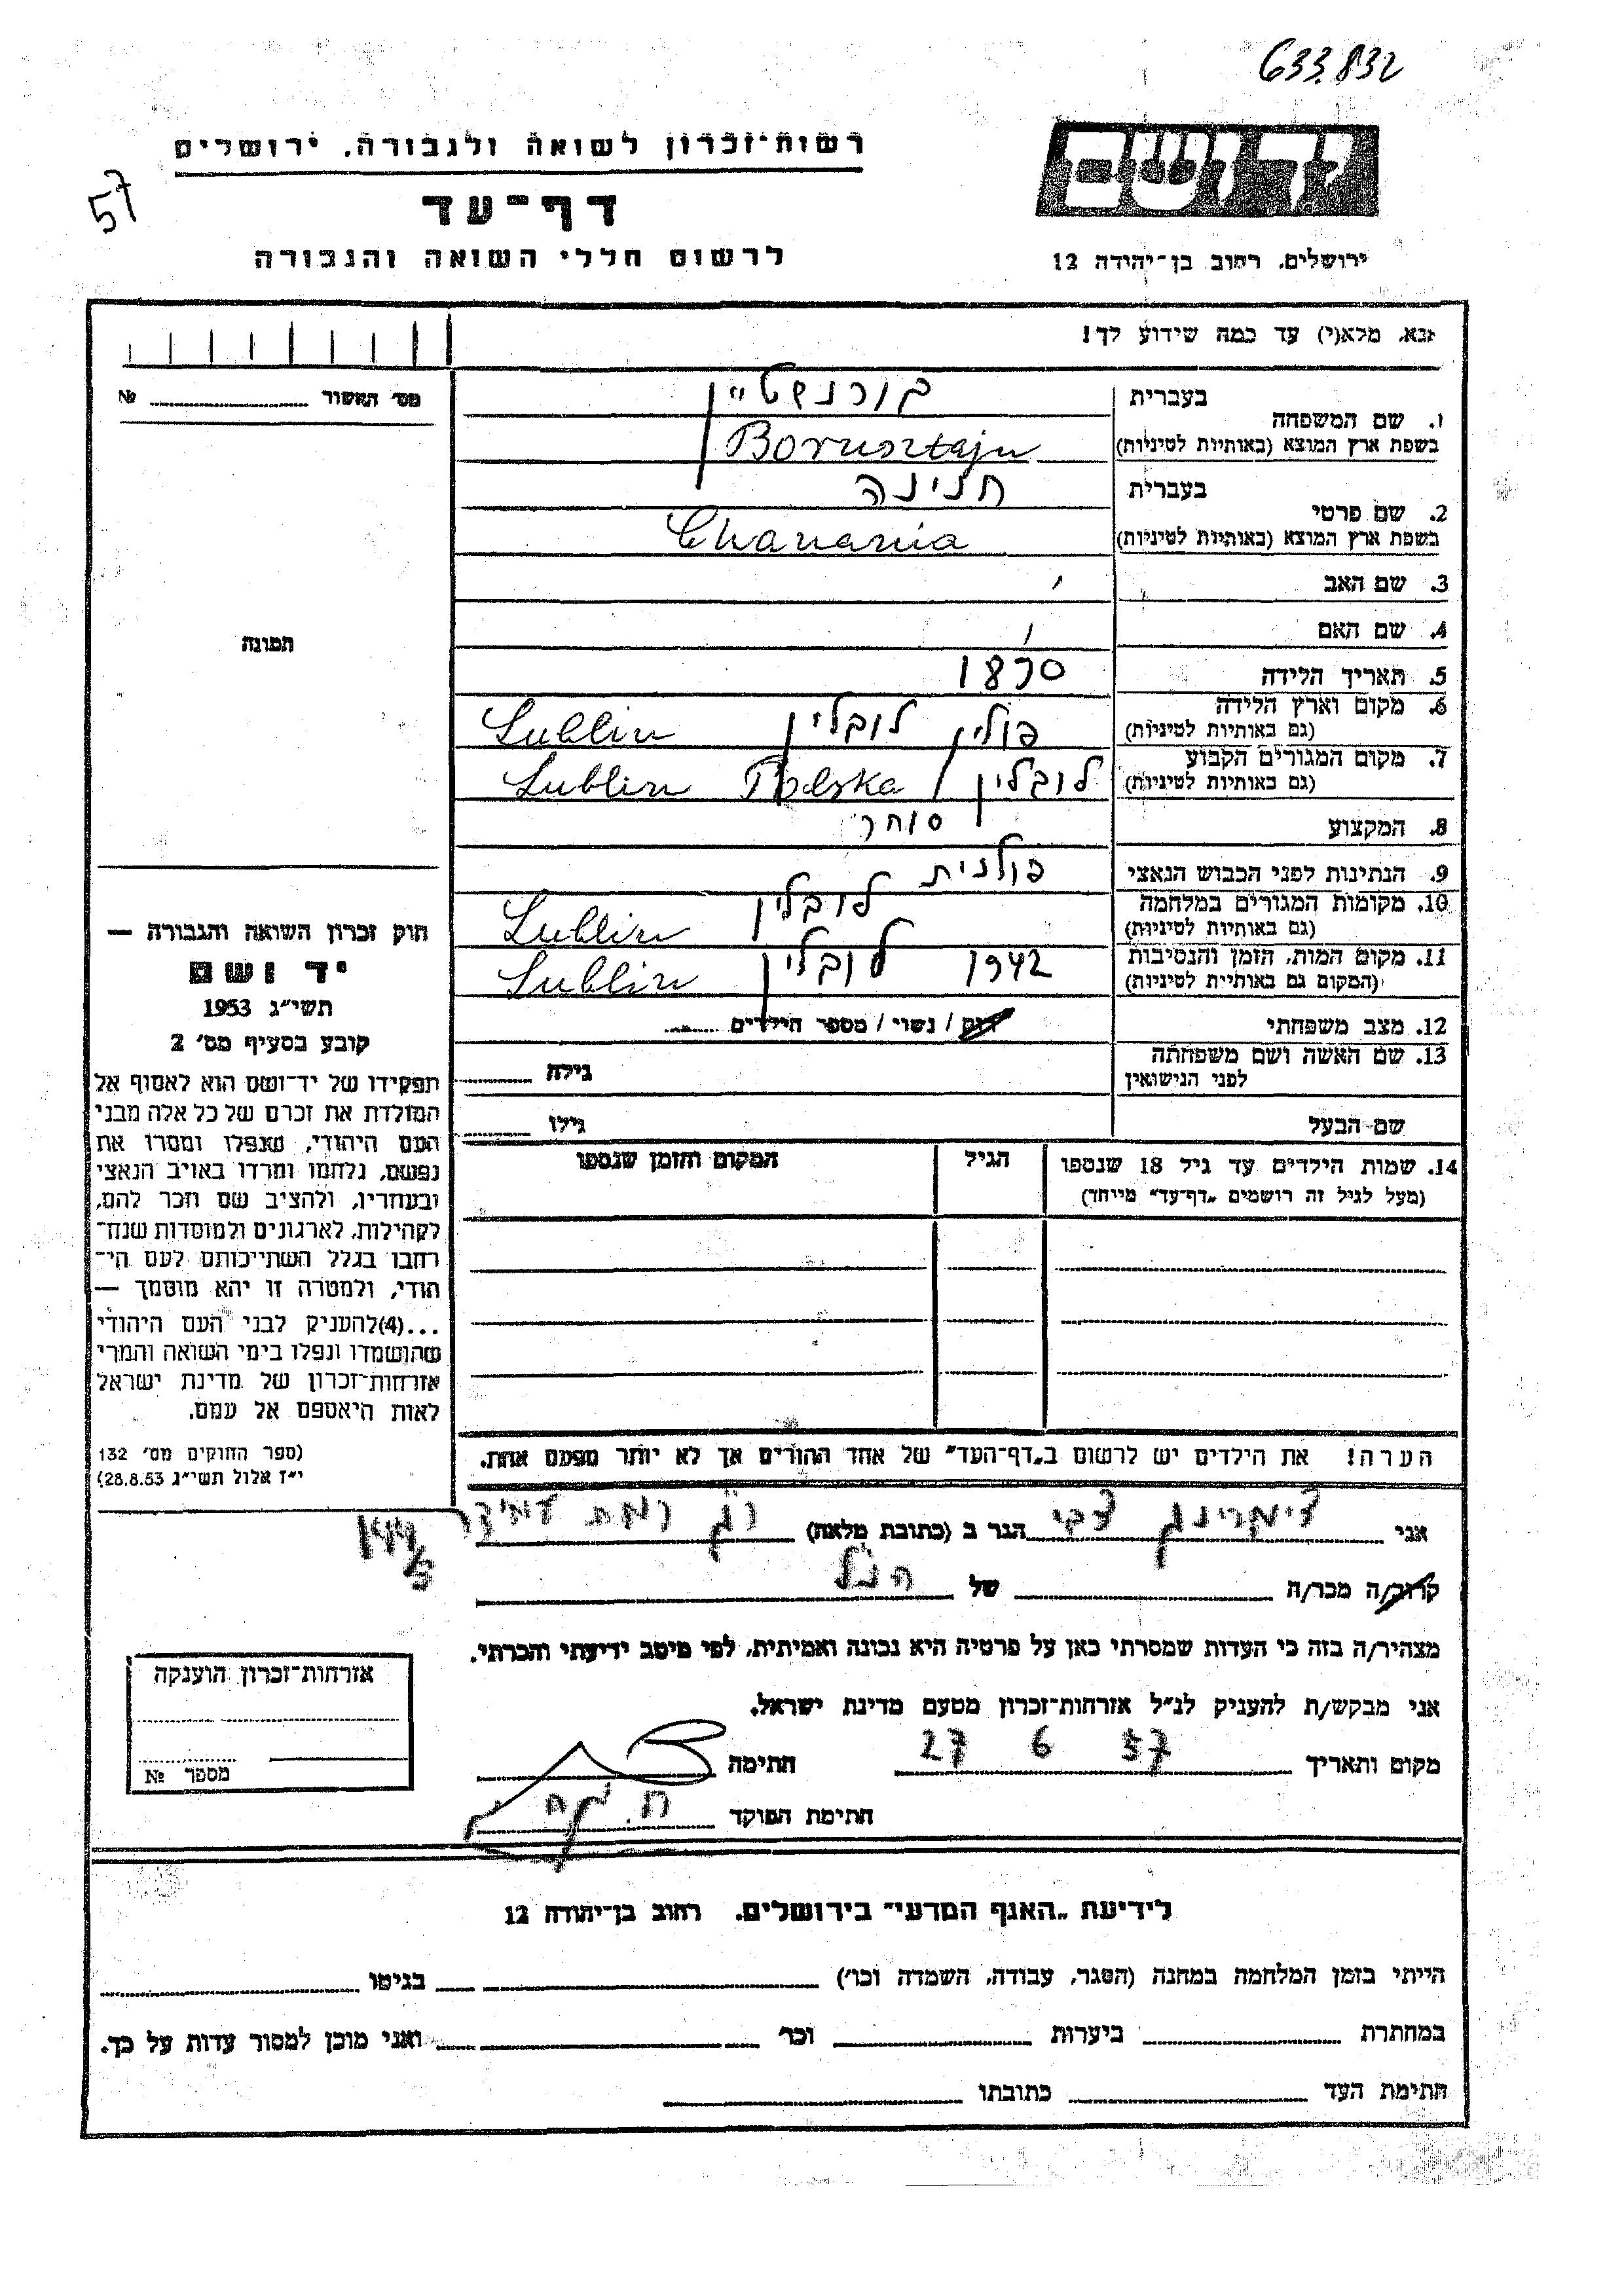 633.832
רשות־זכרון לשואה ולגבורה, ירושלים
יד ושם
57
דף־עד
לרשום חללי השואה והגבורה
ירושלים, רחוב בן־יהודה 12
נא, מלא(י) עד כמה שידוע לך!
מס׳ האשור № 
1. שם המשפחה בעברית בורנשטיין
בשפת ארץ המוצא (באותיות לטיניות) Bornsztajn
2. שם פרטי בעברית חנינה
בשפת ארץ המוצא (באותיות לטיניות) Chanania
3. שם האב
4. שם האם
תמונה
5. תאריך הלידה 1870
6. מקום וארץ הלידה פולין לובלין Lublin
(גם באותיות לטיניות)
7. מקום המגורים הקבוע לובלין / Polska Lublin
(גם באותיות לטיניות)
8. המקצוע סוחר
9. הנתינות לפני הכבוש הנאצי פולנית
10. מקומות המגורים במלחמה לובלין Lublin
(גם באותיות לטיניות)
11. מקום המות, הזמן והנסיבות 1942 לובלין Lublin
(המקום גם באותיות לטיניות)
12. מצב משפחתי רווק / נשוי / מספר הילדים
13. שם האשה ושם משפחתה גילה
לפני הנישואין
שם הבעל גילו
14. שמות הילדים עד גיל 18 שנספו הגיל המקום והזמן שנספו
(מעל לגיל זה רושמים „דף־עד״ מיוחד)
הערה! את הילדים יש לרשום ב„דף־העד״ של אחד ההורים אך לא יותר מפעם אחת.
חוק זכרון השואה והגבורה —
יד ושם
תשי״ג 1953
קובע בסעיף מס׳ 2
תפקידו של יד־ושם הוא לאסוף אל
המולדת את זכרם של כל אלה מבני
העם היהודי, שנפלו ומסרו את
נפשם, נלחמו ומרדו באויב הנאצי
ובעוזריו, ולהציב שם וזכר להם,
לקהילות, לארגונים ולמוסדות שנח־
רחבו בגלל השתייכותם לעם הי־
הודי, ולמטרה זו יהא מוסמך —
...(4)להעניק לבני העם היהודי
שהושמדו ונפלו בימי השואה והמרי
אזרחות־זכרון של מדינת ישראל
לאות היאספם אל עמם.
(ספר החוקים מס׳ 132
י״ז אלול תשי״ג 28.8.53)
אני צבי הגר ב (כתובת מלאה) רמת
קרוב/ה מכר/ה של הנ״ל
מצהיר/ה בזה כי העדות שמסרתי כאן על פרטיה היא נכונה ואמיתית, לפי מיטב ידיעתי והכרתי.
אני מבקש/ת להעניק לנ״ל אזרחות־זכרון מטעם מדינת ישראל.
מקום ותאריך 27 6 57 חתימה
חתימת הפוקד
אזרחות־זכרון הוענקה
מספר №
לידיעת „האגף המדעי״ בירושלים, רחוב בן־יהודה 12
הייתי בזמן המלחמה במחנה (הסגר, עבודה, השמדה וכו׳) בגיטו
במחתרת ביערות וכו׳ ואני מוכן למסור עדות על כך.
חתימת העד כתובתו